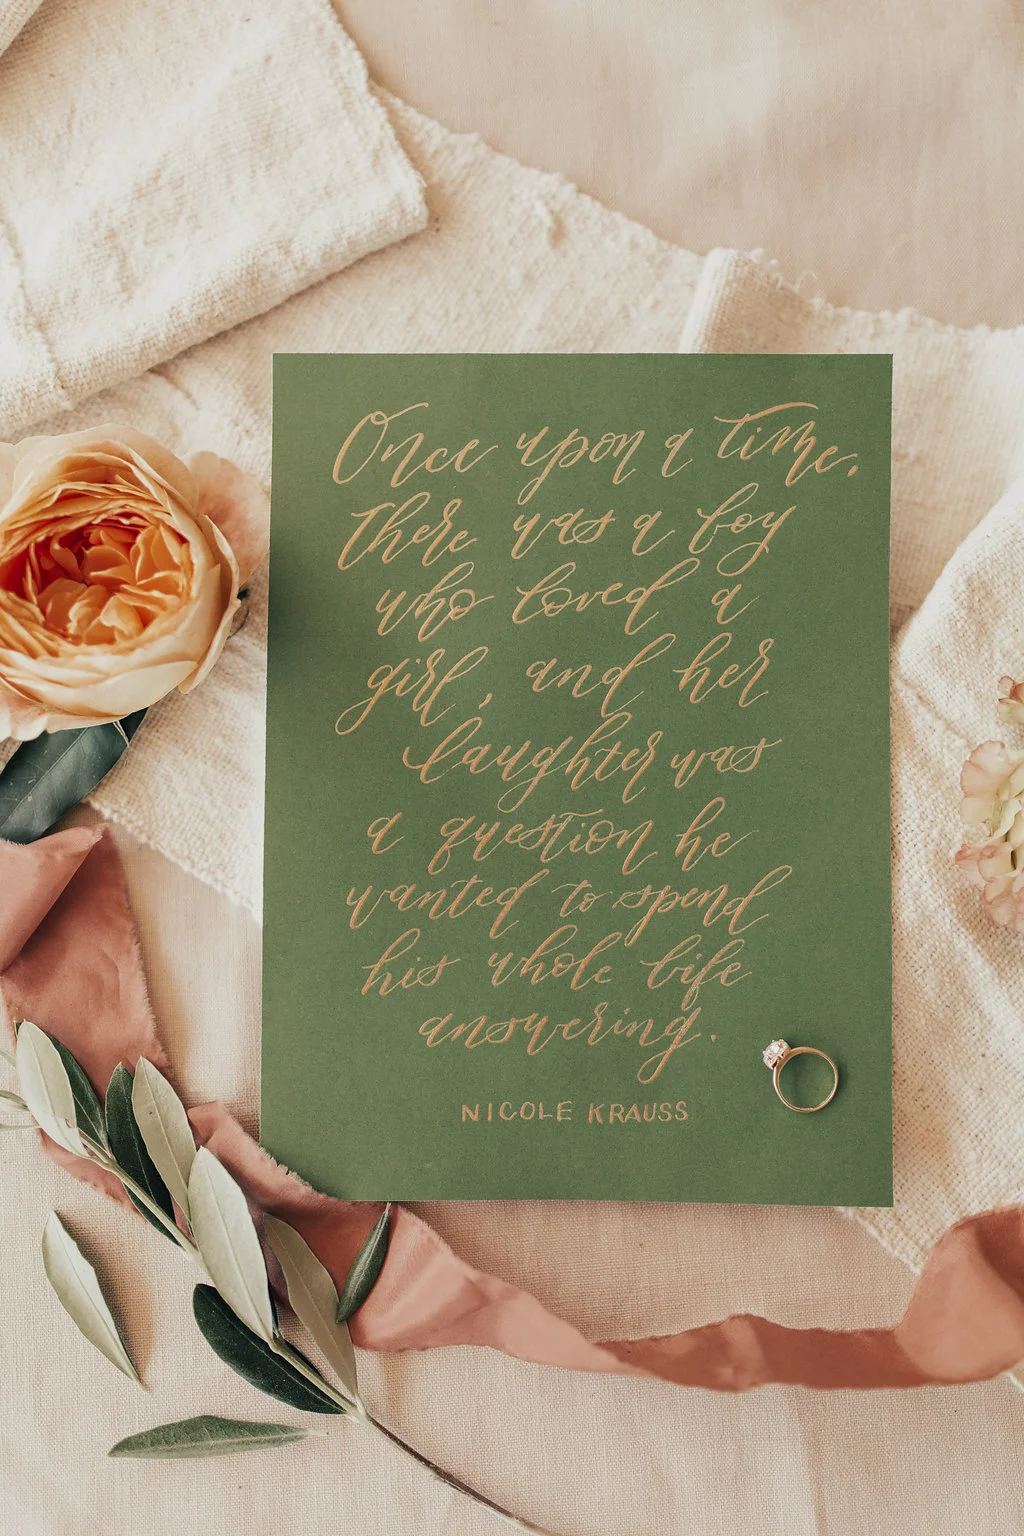 Once upon a time,
there was a boy
who loved a
girl, and her
laughter was
a question he
wanted to spend
his whole life
answering.
NICOLE KRAUSS